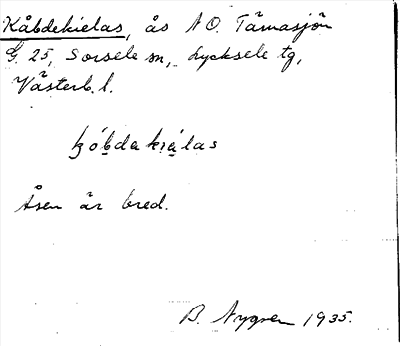 Kåbdekielas, ås N O. Tärnasjön
G. 25, Sorsele sn, Lycksele tg,
Västerb. l.
kóbdakiạlas
Åsen är bred.
B. Nygren 1935.